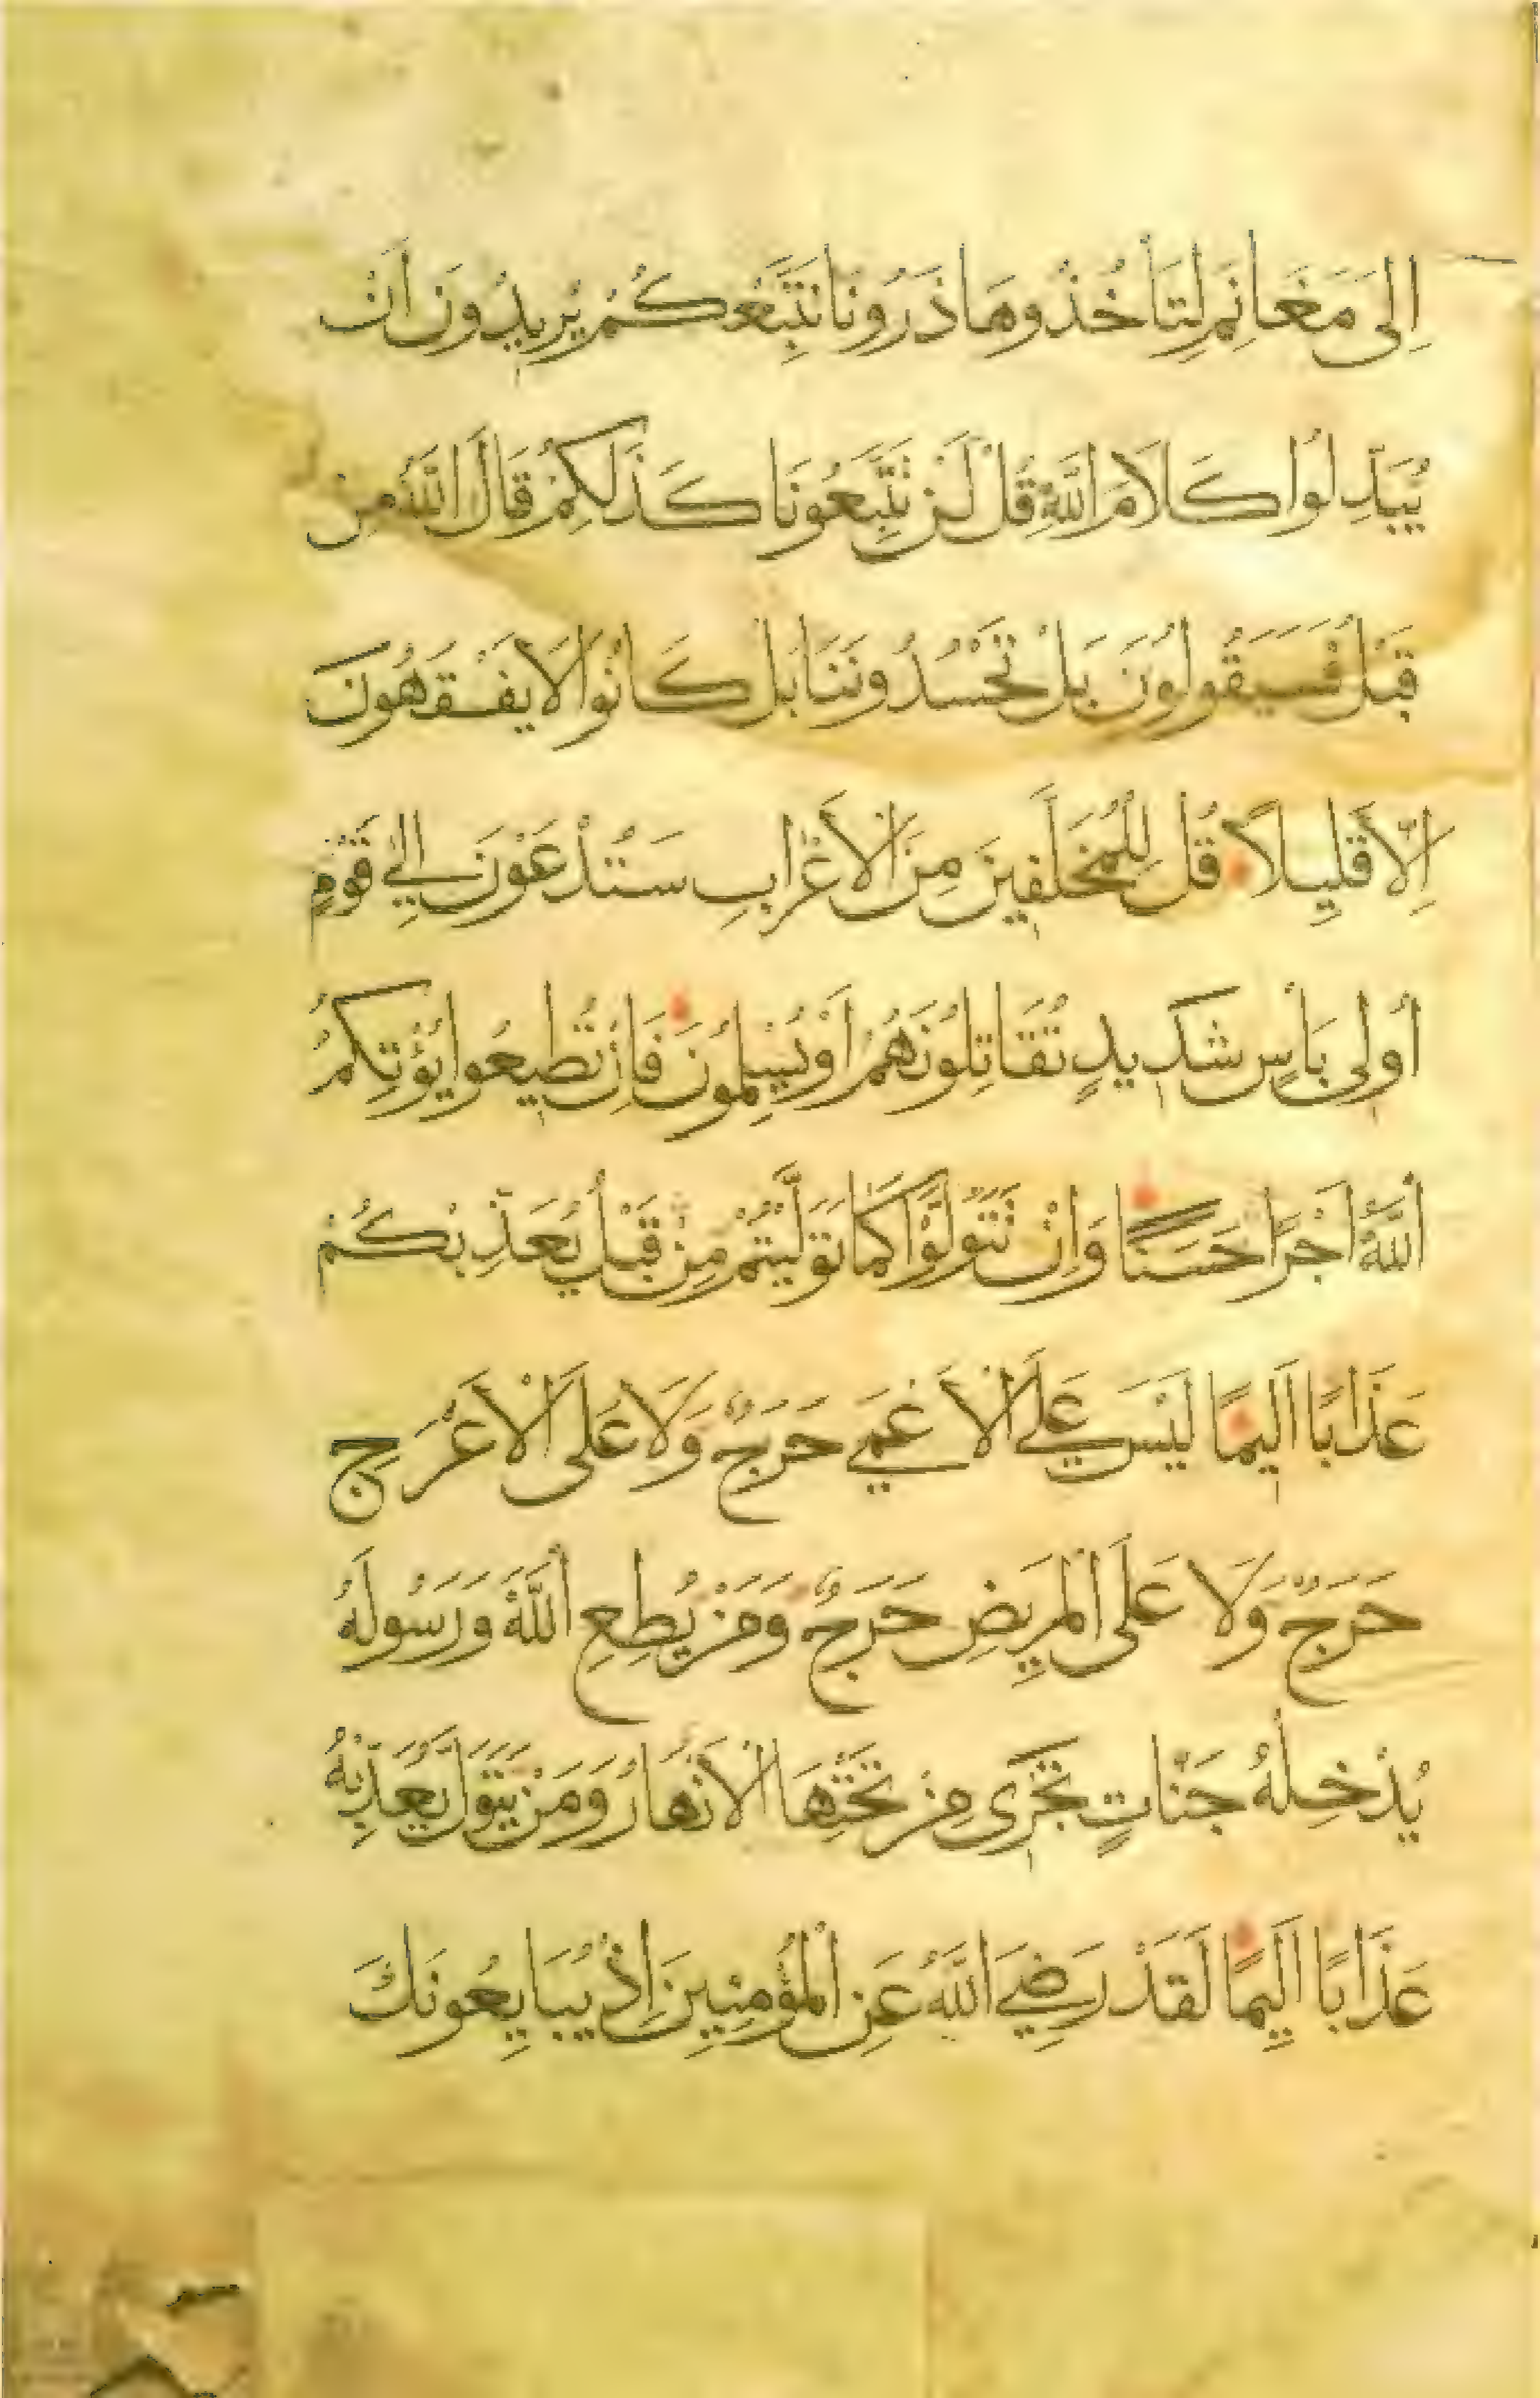 اِلى مَغَانِمَ لِتَأخُذُوهَا ذَرُونَا نَتَّبِعْكُمْ يُرِيدُونَ اَنْ
يُبَدِّلُوُا كَلَامَ اللَّهِ قُلْ لَنْ تَتَّبِعُونَا كَذَلِكُمْ قَالَ اللَّهُ مِنْ
قَبْلُ فَسَيَقُولُونَ بَلْ تَحْسُدُونَنَا بَلْ كَانُوا لَا يَفْقَهُونَ
اِلَّا قَلِيلًا قُلْ لِلْمُخَلَّفِينَ مِنَ الْاَعْرَابِ سَتُدْعَوْنَ اِلى قَوْمٍ
اُولِى بَأْسٍ شَدِيدٍ تُقَاتِلُونَهُمْ اَوْ يُسْلِمُونَ فَاِنْ تُطِيعُوا يُؤْتِكُمُ
اللَّهُ اَجْرًا حَسَنًا وَاِنْ تَتَوَلَّوْا كَمَا تَوَلَّيْتُمْ مِنْ قَبْلُ يُعَذِّبْكُمْ
عَذَابًا اَلِيمًا لَيْسَ عَلَى الْاَعْمَى حَرَجٌ وَلَا عَلَى الْاَعْرَجِ
حَرَجٌ وَلَا عَلَى الْمَرِيضِ حَرَجٌ وَمَنْ يُطِعِ اللَّهَ وَرَسُولَهُ
يُدْخِلْهُ جَنَّاتٍ تَجْرِى مِنْ تَحْتِهَا الْاَنْهَارُ وَمَنْ يَتَوَلَّ يُعَذِّبْهُ
عَذَابًا اَلِيمًا لَقَدْ رَضِيَ اللَّهُ عَنِ الْمُؤْمِنِينَ اِذْ يُبَايِعُونَكَ